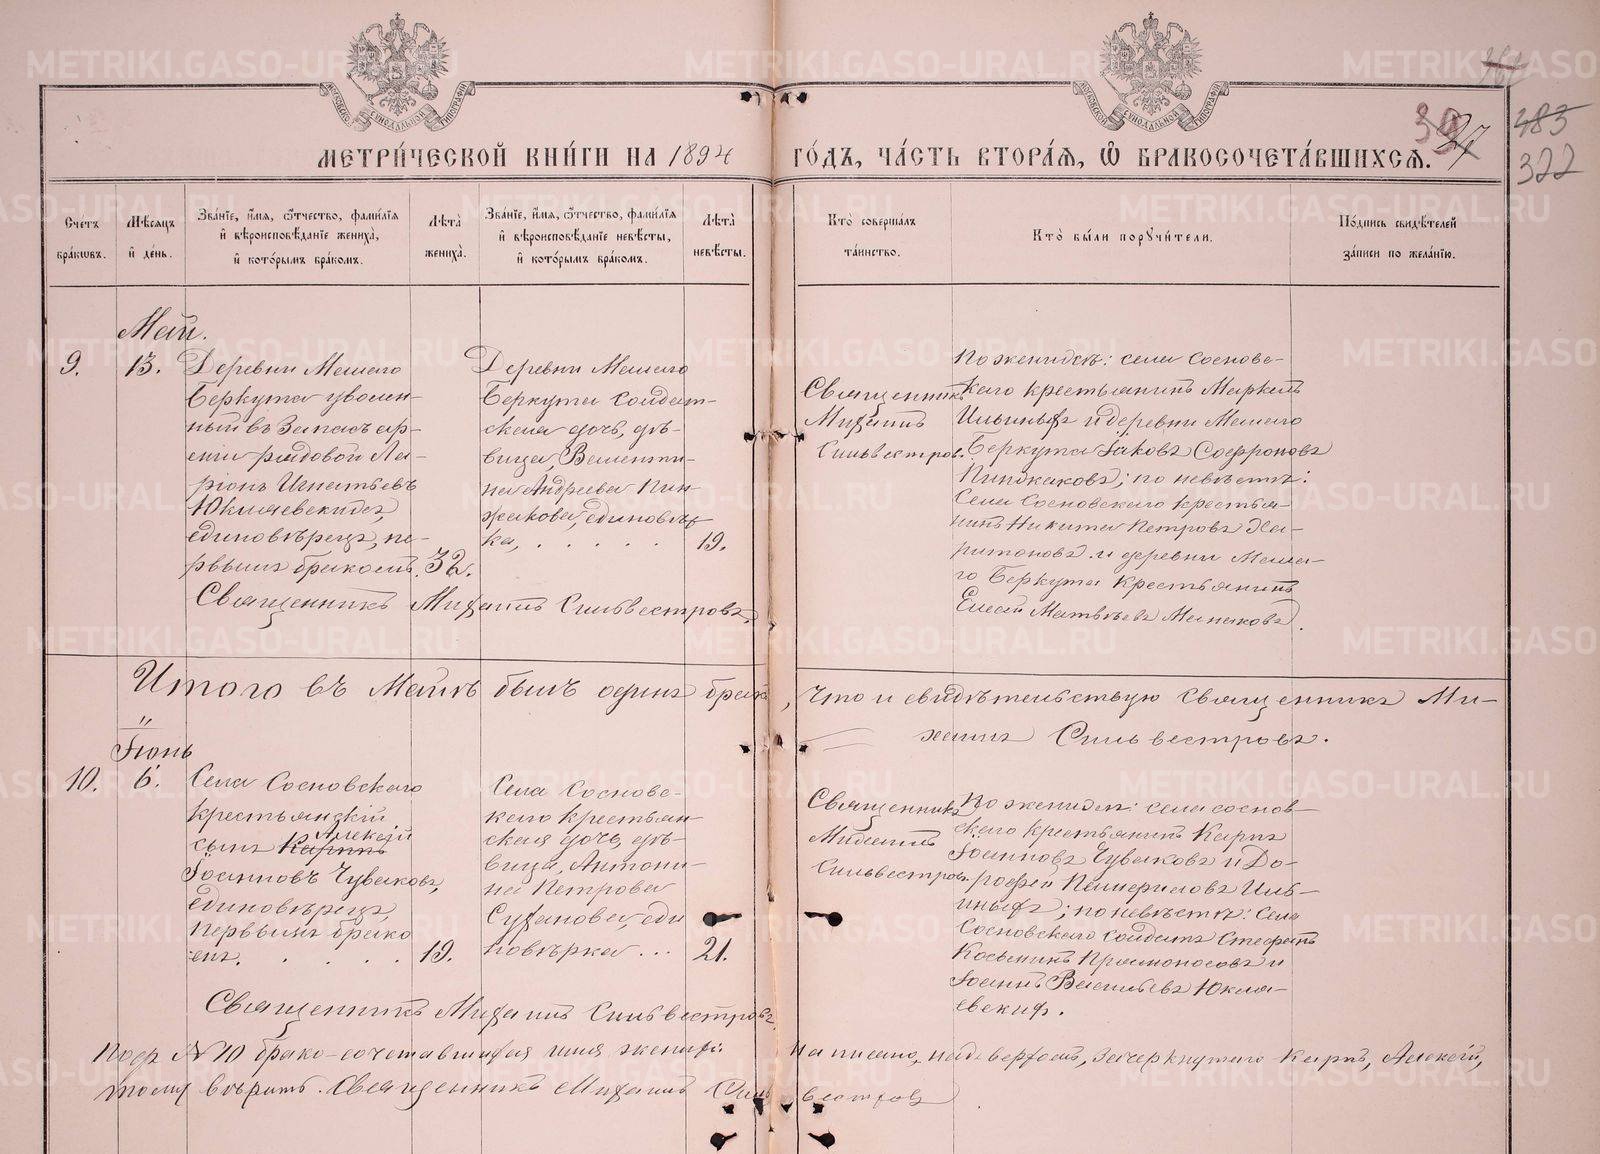 МЕТРИ́ЧЕСКОЙ КНИ́ГИ НА 1894 ГО́ДЪ, ЧА́СТЬ ВТОРА́Я, Ѡ҆ БРАКОСОЧЕТА́ВШИХСѦ.
39
27
483
322
Сче́тъ бра́кѡвъ.
Мѣ́сѧцъ и҆ де́нь.
Зва́нїе, и҆́мѧ, ѻ҆́тчество, фами́лїѧ и҆ вѣроисповѣ́данїе жениха̀, и҆ кото́рымъ бра́комъ.
Лѣ́та жениха̀.
Зва́нїе, и҆́мѧ, ѻ҆́тчество, фами́лїѧ и҆ вѣроисповѣ́данїе невѣ́сты, и҆ кото́рымъ бра́комъ.
Лѣ́та невѣ́сты.
Кто̀ соверша́лъ та́инство.
Кто̀ бы́ли порꙋчи́тели.
По́дпись свидѣ́телей за́писи по жела́нїю.
Май.
9.
13.
Деревни Малаго
Беркута уволен-
ный въ Запасъ ар-
міи рядовой Ла-
ріонъ Игнатьевъ
Юклаевскихъ,
единовѣрецъ, пе-
рвымъ бракомъ.
32.
Деревни Малаго
Беркута солдат-
ская дочь, дѣ-
вица, Валенти-
на Андреева Пин-
жакова, единовѣр-
ка, . . . . .
19.
Священникъ
Михаилъ
Сильвестровъ.
По женихѣ: села Соснов-
скаго крестьянинъ Маркелъ
Ильиныхъ и деревни Малаго
Беркута Іаковъ Софроновъ
Пинжаковъ; по невѣстѣ:
Села Сосновскаго крестья-
нинъ Никита Петровъ Ха-
ритоновъ и деревни Мала-
го Беркута крестьянинъ
Елисей Матвѣевъ Минаковъ.
Священникъ Михаилъ Сильвестровъ.
Итого въ Маѣ былъ одинъ бракъ, что и свидѣтельствую Священникъ Ми-
хаилъ Сильвестровъ.
Іюнь
10.
6.
Села Сосновскаго
крестьянскій
Алексѣй
сынъ Карпъ
Іоанновъ Чуваковъ,
единовѣрецъ,
первымъ брако
мъ. . . . . .
19.
Села Соснов-
скаго крестьян-
ская дочь, дѣ-
вица, Антони-
на Петрова
Суханова, еди
новѣрка ...
21.
Священникъ
Михаилъ
Сильвестровъ.
По женихѣ: села Соснов-
скаго крестьянинъ Карпъ
Іоанновъ Чуваковъ и До-
рофей Панфиловъ Иль-
иныхъ; по невѣстѣ: Села
Сосновскаго солдатъ Стефанъ
Косьминъ Прямоносовъ и
Іоаннъ Васильевъ Юкла-
евскихъ.
Священникъ Михаилъ Сильвестровъ.
Подъ №10 брако-сочетавшихся имя жениха написано, надъ верхомъ, зачеркнутаго Карпъ, Алексѣй,
тому вѣрить. Священникъ Михаилъ Сильвестровъ
METRIKI.GASO-URAL.RU